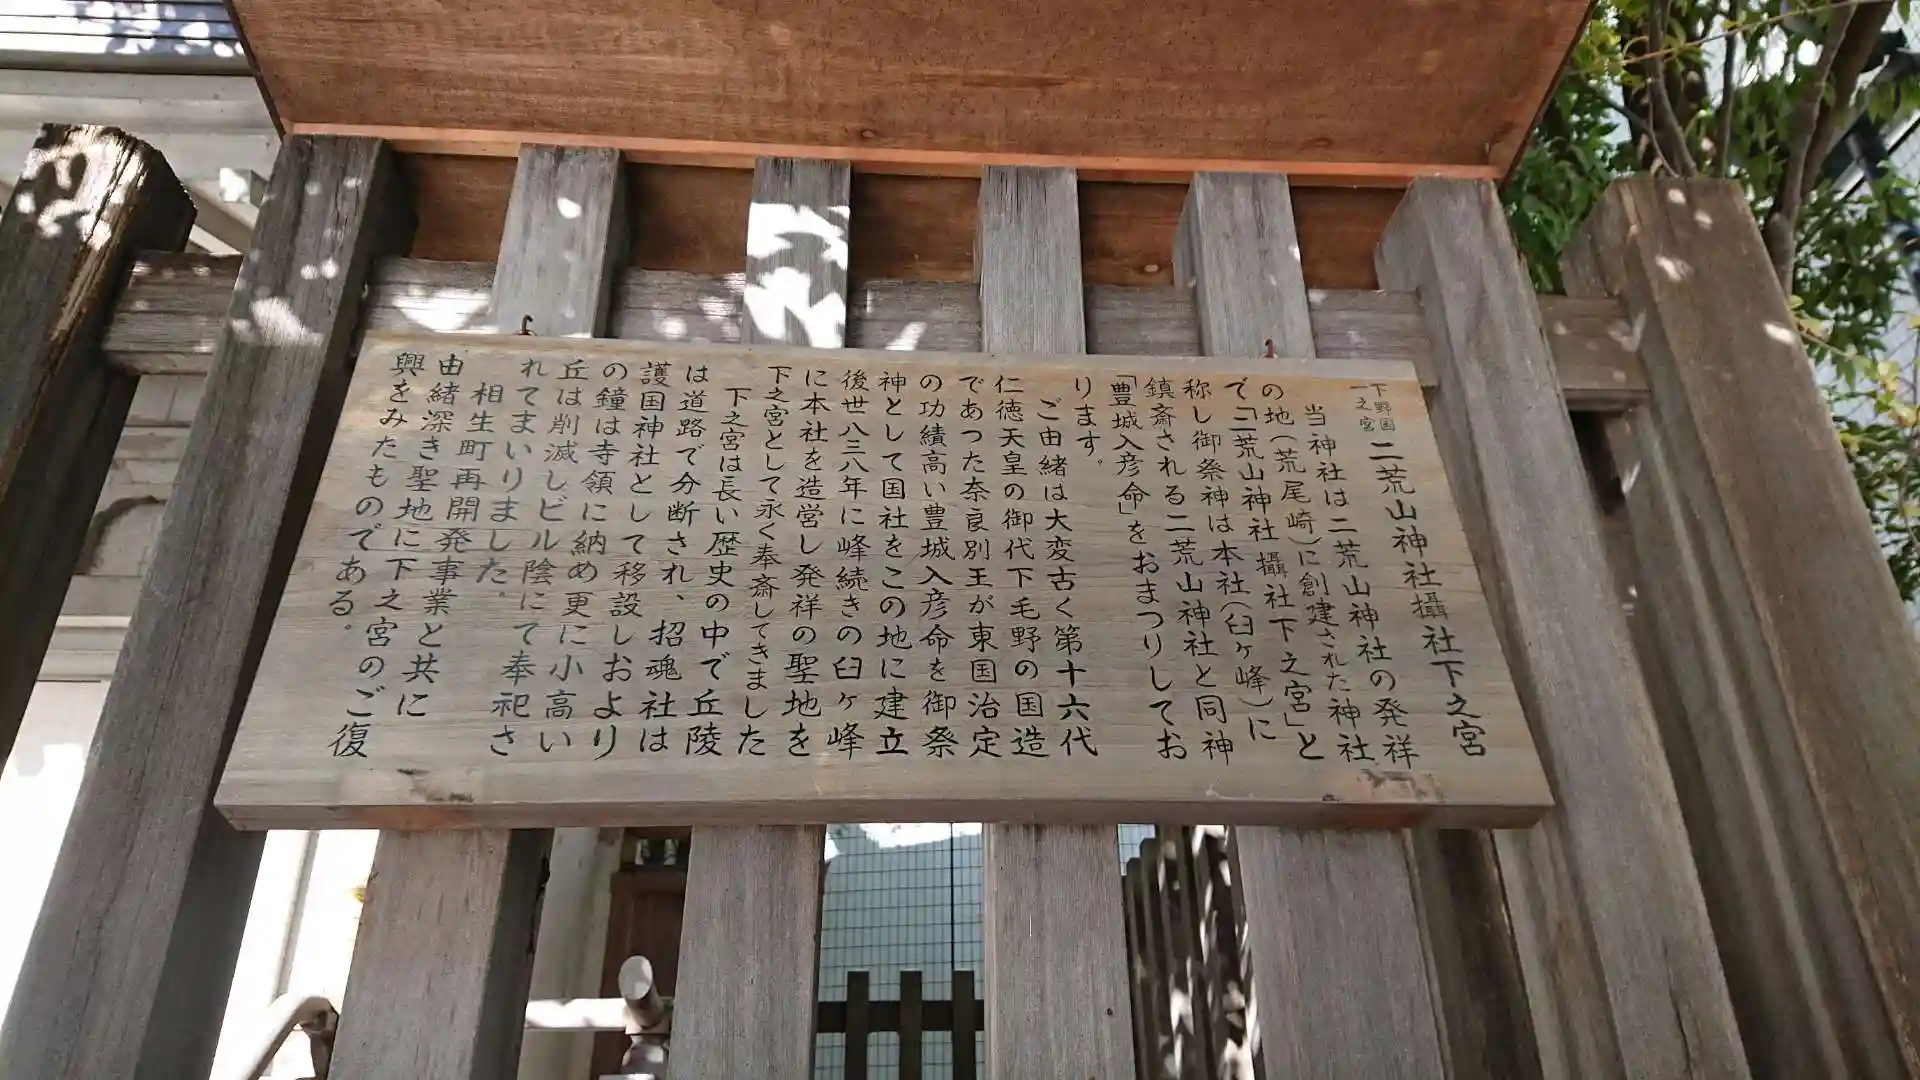 下野国
一之宮
二荒山神社攝社下之宮
当神社は二荒山神社の発祥
の地(荒尾崎)に創建された神社
で「二荒山神社攝社下之宮」と
称し御祭神は本社(臼ヶ峰)に
鎮斎される二荒山神社と同神
「豊城入彦命」をおまつりしてお
ります。
ご由緒は大変古く第十六代
仁徳天皇の御代下毛野の国造
であった奈良別王が東国治定
の功績高い豊城入彦命を御祭
神として国社をこの地に建立
後世八三八年に峰続きの臼ヶ峰
に本社を造営し発祥の聖地を
下之宮として永く奉斎してきました
下之宮は長い歴史の中で丘陵
は道路で分断され、招魂社は
護国神社として移設しおより
の鐘は寺領に納め更に小高い
丘は削減しビル陰にて奉祀さ
れてまいりました。
相生町再開発事業と共に
由緒深き聖地に下之宮のご復
興をみたものである。